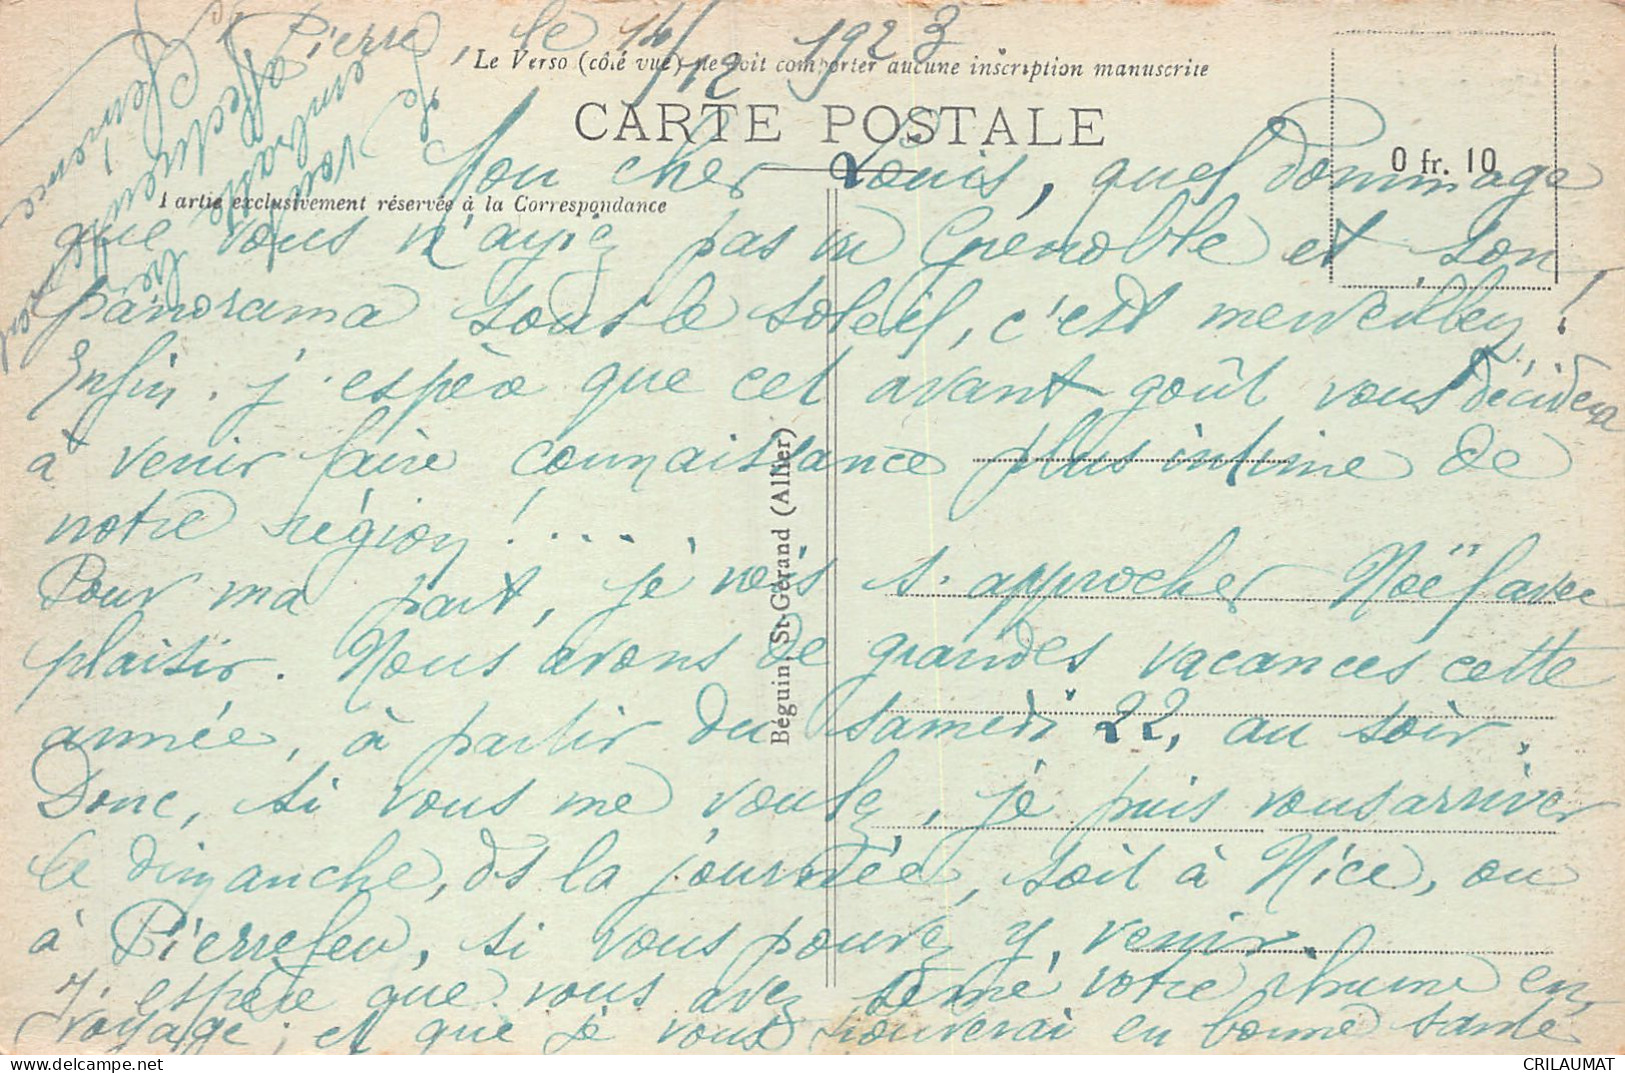 St Pierre, le 14/12 1923
Le Verso (côté vue) ne doit comporter aucune inscription manuscrite
CARTE POSTALE
0 fr. 10
Partie exclusivement réservée à la Correspondance
Béguin, St-Gérand (Allier)
Mon cher Louis, quel dommage
que vous n'ayiez pas vu Grenoble et son
panorama sous le soleil, c'est merveilleux!
Enfin. j'espère que cet avant goût vous décidera
à venir faire connaissance plus intime de
notre région!....
Pour ma part, je vois s'approcher Noël avec
plaisir. Nous avons de grandes vacances cette
année, à partir du samedi 22, au soir.
Donc, si vous me voulez, je puis vous arriver
le dimanche, ds la journée, soit à Nice, ou
à Pierrefeu, si vous pouvez y venir.
J'espère que vous avez semé votre rhume en
voyage; et que je vous trouverai en bonne santé
Je vous embrasse
affectueusement
Clémence
CRILAUMAT